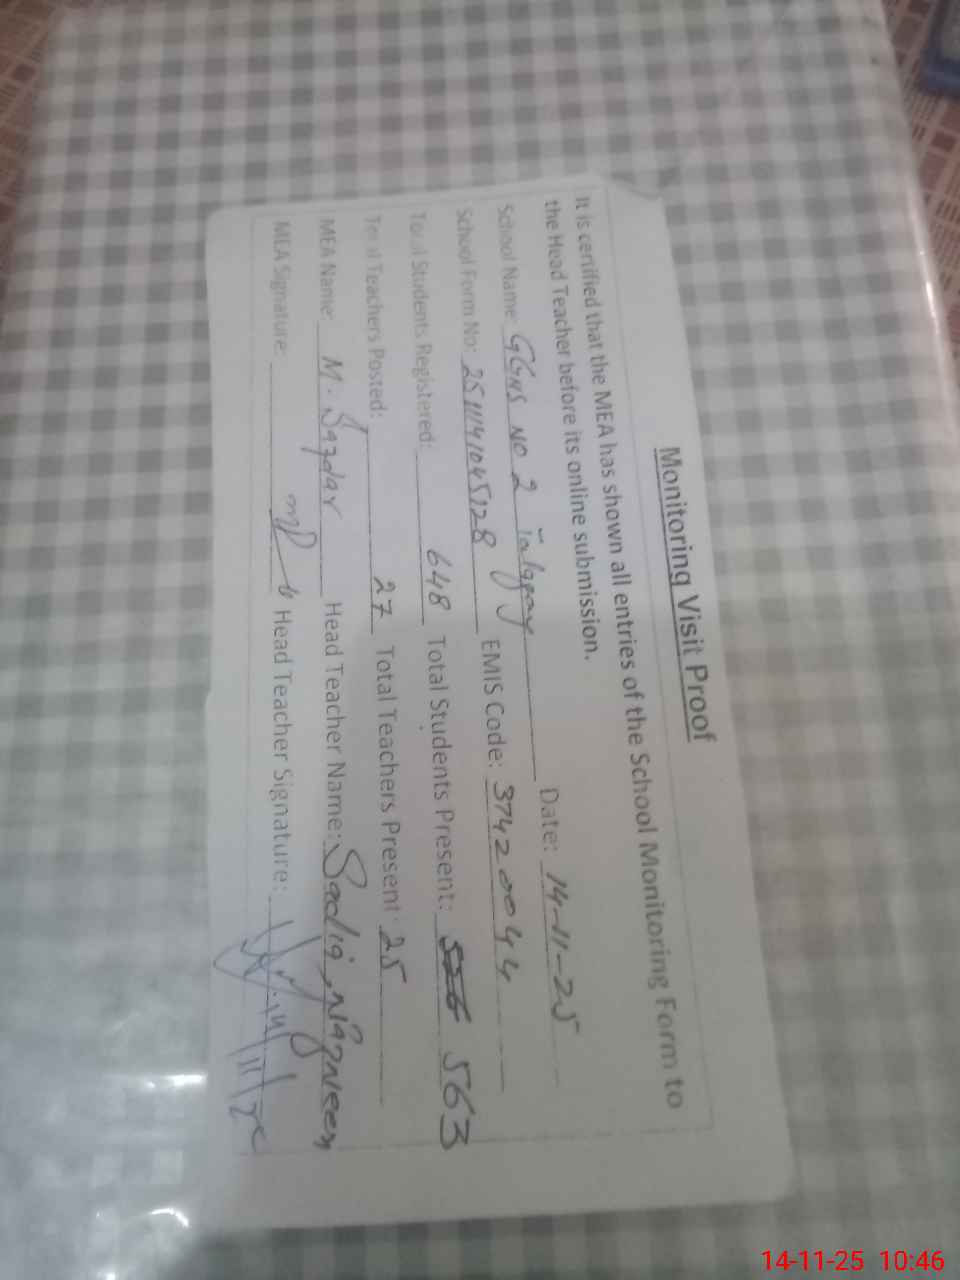 Monitoring Visit Proof
It is certified that the MEA has shown all entries of the School Monitoring Form to
the Head Teacher before its online submission.
School Name: GGHS NO 2 Talagang Date: 14-11-25
School Form No: 2511141045128 EMIS Code: 37420044
Total Students Registered: 648 Total Students Present: 563
Total Teachers Posted: 27 Total Teachers Present: 25
MEA Name: M. Safdar Head Teacher Name: Sadia Nazneen
MEA Signature: Head Teacher Signature:
14-11-25 10:46